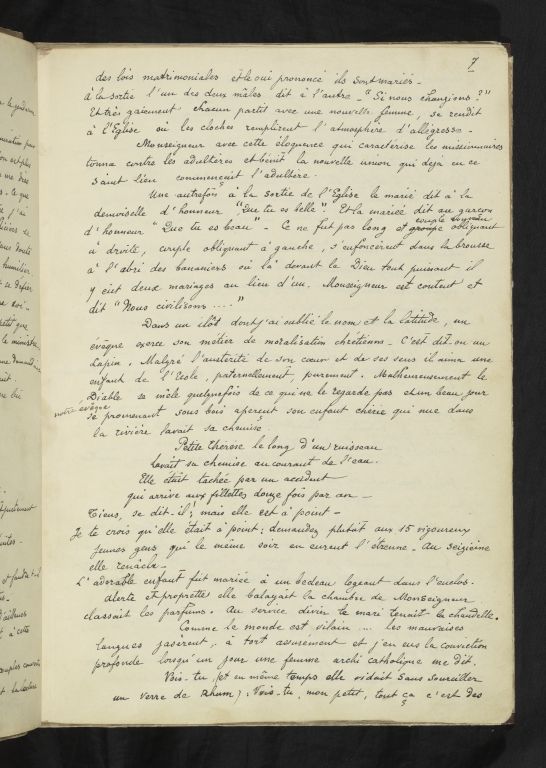 7
des lois matrimoniales et le oui prononcé ils sont mariés –
à la sortie l'un des deux mâles dit à l'autre – "Si nous changions?"
Et très gaiement chacun partit avec une nouvelle femme, se rendit
à l'Eglise où les cloches remplirent l'atmosphère d'allégresse –
Monseigneur avec cette éloquence qui caractérise les missionnaires
tonna contre les adultères et benit la nouvelle union qui dejà en ce
Saint lieu commençait l'adultère.
Une autrefois à la sortie de l'Eglise le marié dit à la
demoiselle d'honneur "Que tu es belle" Et la mariée dit au garçon
d'honneur "Que tu es beau" – Ce ne fut pas long et groupe obliquant
couple nouveau
à droite, couple obliquant à gauche, s'enfoncèrent dans la brousse
à l'abri des bananiers où là devant le Dieu tout puissant il
y eut deux mariages au lieu d'un. Monseigneur est content et
dit "Nous civilisons ...."
Dans un ilôt dont j'ai oublié le nom et la latitude, un
évêque exerce son métier de moralisation chrétienne – C'est dit-on un
lapin. Malgré l'austérité de son cœur et de ses sens il aima une
enfant de l'Ecole, paternellement, purement. Malheureusement le
Diable se mêle quelquefois de ce qui ne le regarde pas et un beau jour
notre évêque
se promenant sous bois aperçut son enfant chérie qui nue dans
la rivière lavait sa chemise
Petite Thérèse le long d'un ruisseau
Lavait sa chemise au courant de l'eau.
Elle était tâchée par un accident
qui arrive aux fillettes douze fois par an –
Tiens, se dit-il; mais elle est à point –
Je te crois qu'elle était à point: demandez plutôt aux 15 vigoureux
jeunes gens qui le même soir en eurent l'étrenne – Au seizième
elle renâcla –
L'adorable enfant fut mariée à un bedeau logeant dans l'enclos.
Alerte et proprette elle balayait la chambre de Monseigneur
classait les parfums. Au service divin le mari tenait la chandelle.
Comme le monde est vilain ... les mauvaises
langues jasèrent, à tort assurément et j'en eus la conviction
profonde lorsqu'un jour une femme archi catholique me dit.
Vois-tu (et en même temps elle vidait sans sourciller
un verre de Rhum): Vois-tu, mon petit, tout ça c'est des